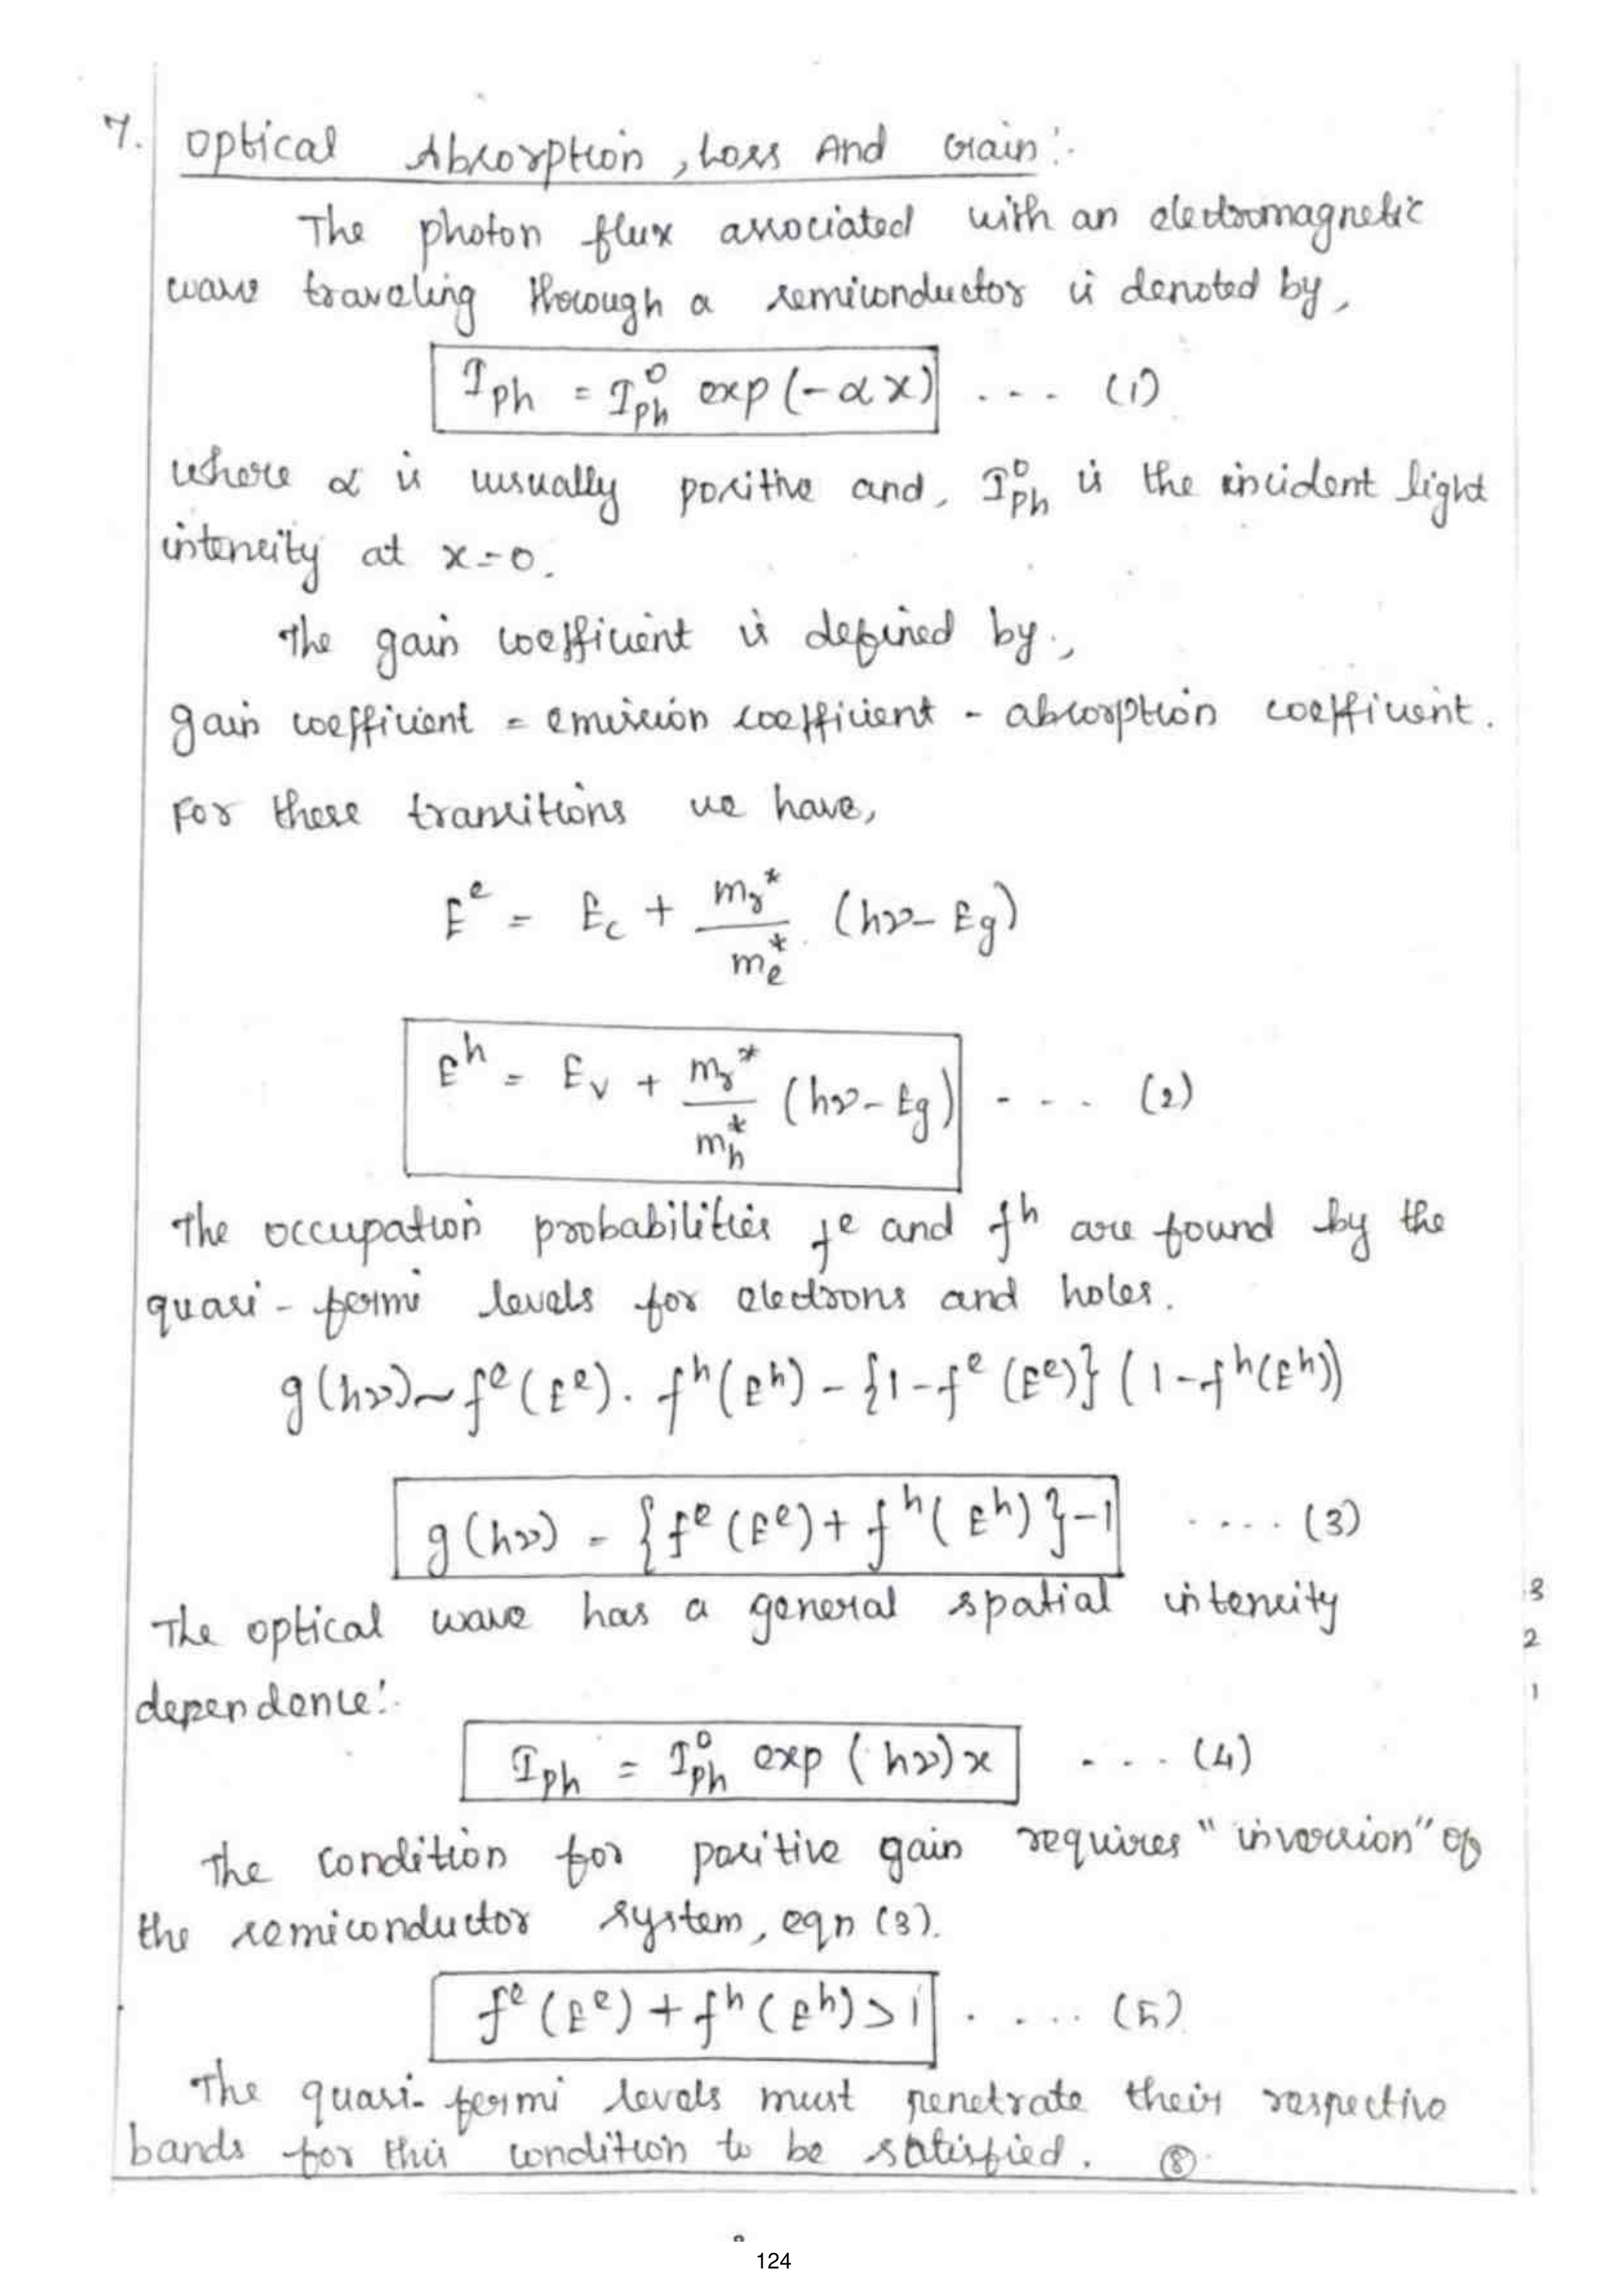 7. Optical Absorption, Loss And Gain:-
The photon flux associated with an electromagnetic
wave traveling through a semiconductor is denoted by,
I_ph = I⁰_ph exp(-αx) ... (1)
where α is usually positive and, I⁰_ph is the incident light
intensity at x=0.
The gain coefficient is defined by,
gain coefficient = emission coefficient - absorption coefficient.
For these transitions we have,
E^e = E_c + m_r*/m_e* (hν-Eg)
E^h = E_v + m_r*/m_h* (hν-Eg) ... (2)
The occupation probabilities f^e and f^h are found by the
quasi-fermi levels for electrons and holes.
g(hν)~f^e(E^e). f^h(E^h) - {1-f^e(E^e)} (1-f^h(E^h))
g(hν) - {f^e(E^e) + f^h(E^h)}-1 .... (3)
The optical wave has a general spatial intensity
3
2
dependence:-
1
I_ph = I⁰_ph exp (hν)x ... (4)
The condition for positive gain requires "inversion" of
the semiconductor system, eqn (3).
f^e(E^e) + f^h(E^h)>1 . .... (5)
The quasi-fermi levels must penetrate their respective
bands for this condition to be satisfied. ⑧
124